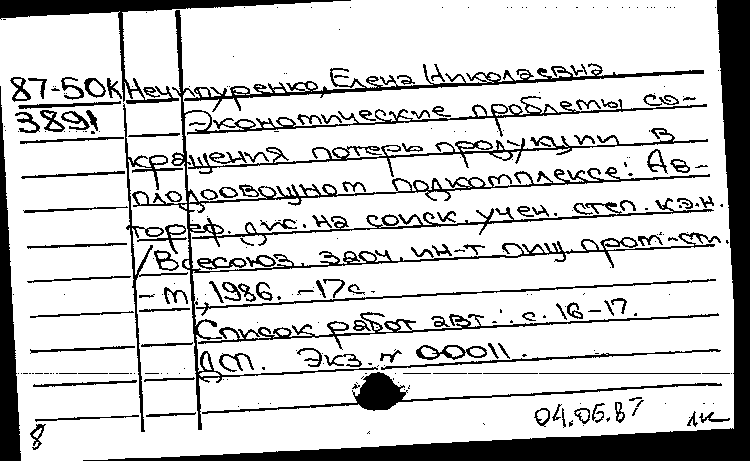 87-50К Нечипуренко, Елена Николаевна.
3891 Экономические проблемы со-
кращения потерь продукции в
плодоовощном подкомплексе: Ав-
тореф. дис. на соиск. учен. степ. к.э.н.
/Всесоюз. заоч. ин-т пищ. пром-сти.
- М., 1986. -17с.
Список работ авт.: с. 16-17.
ДСП. Экз. № 00011.
04.06.87 лк
8